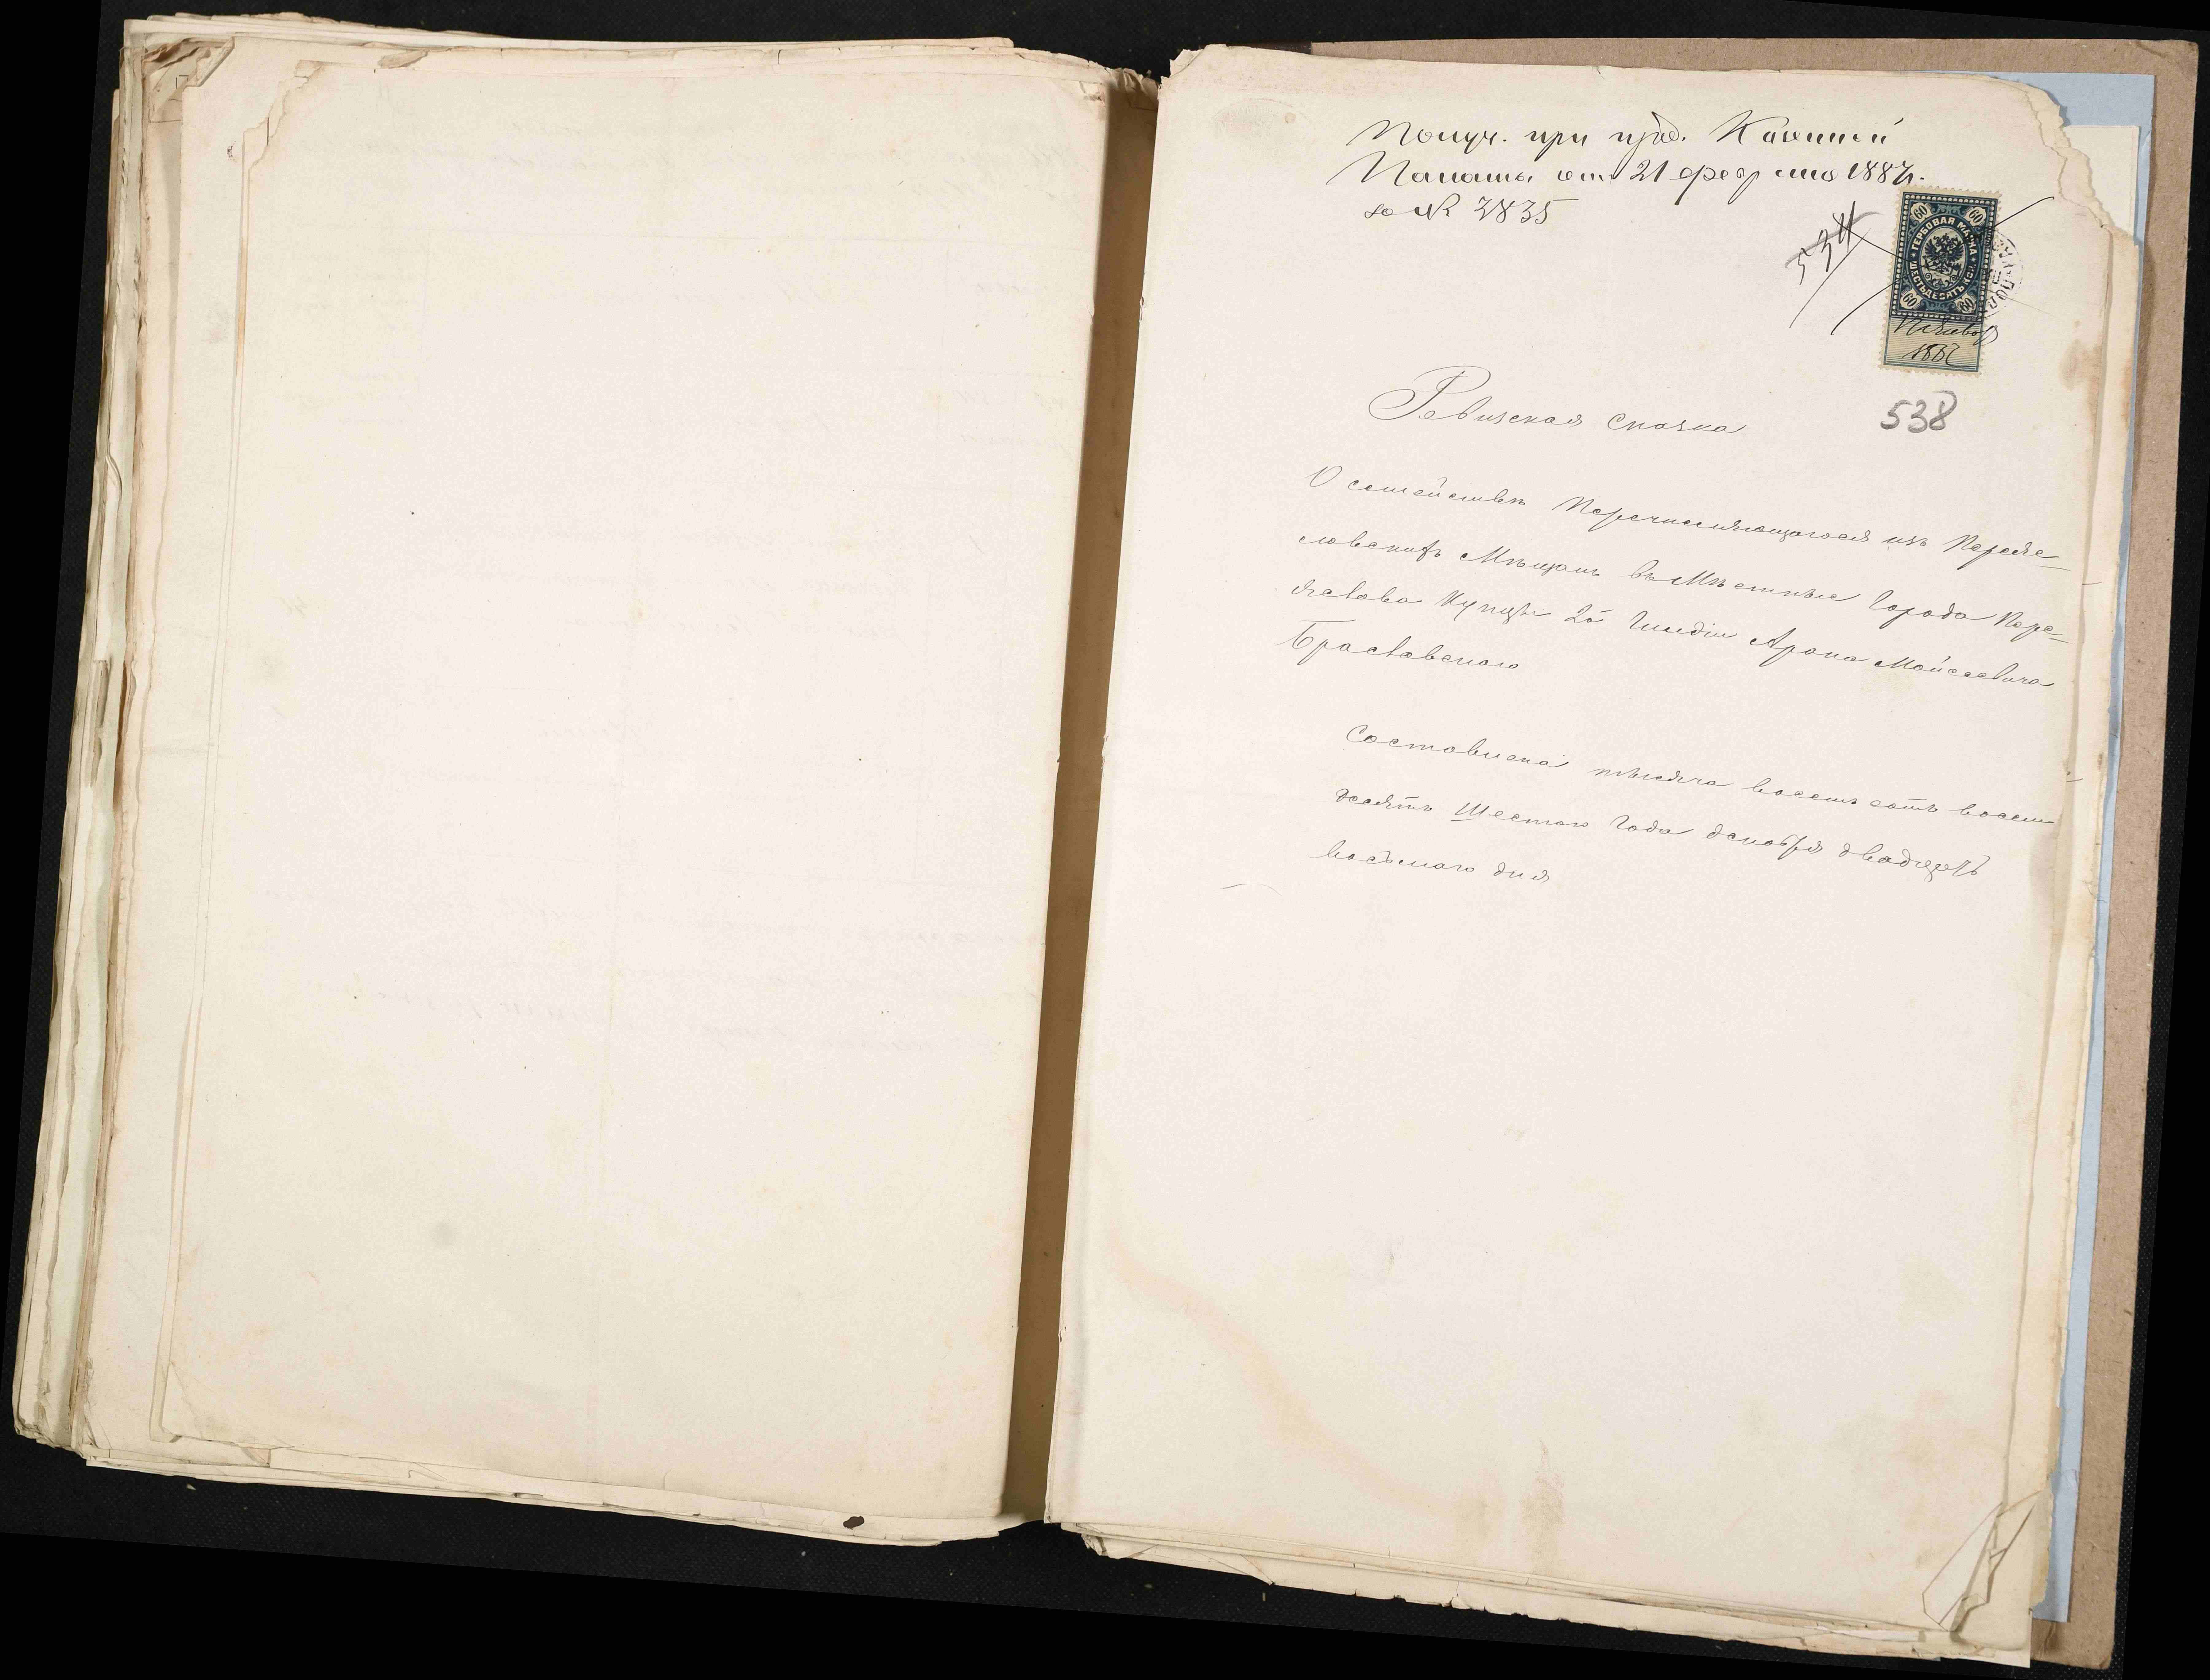 Получ. при пред. Казенной
Палаты отъ 21 февраля 1887 г.
за № 3835
534
60 60
ГЕРБОВАЯ МАРКА
ШЕСТЬДЕСЯТЪ КОП.
60 60
1887
538
Ревизская сказка
О семействѣ Перечисляющагося изъ Перея-
словскихъ Мѣщанъ въ Мѣстные Города Пере-
яслова Купцы 2й Гильдіи Арона Мойсеевича
Браславскаго
Составлена тысяча восемь сотъ восемь
десятъ Шестого Года декабря двадцать
восьмого дня